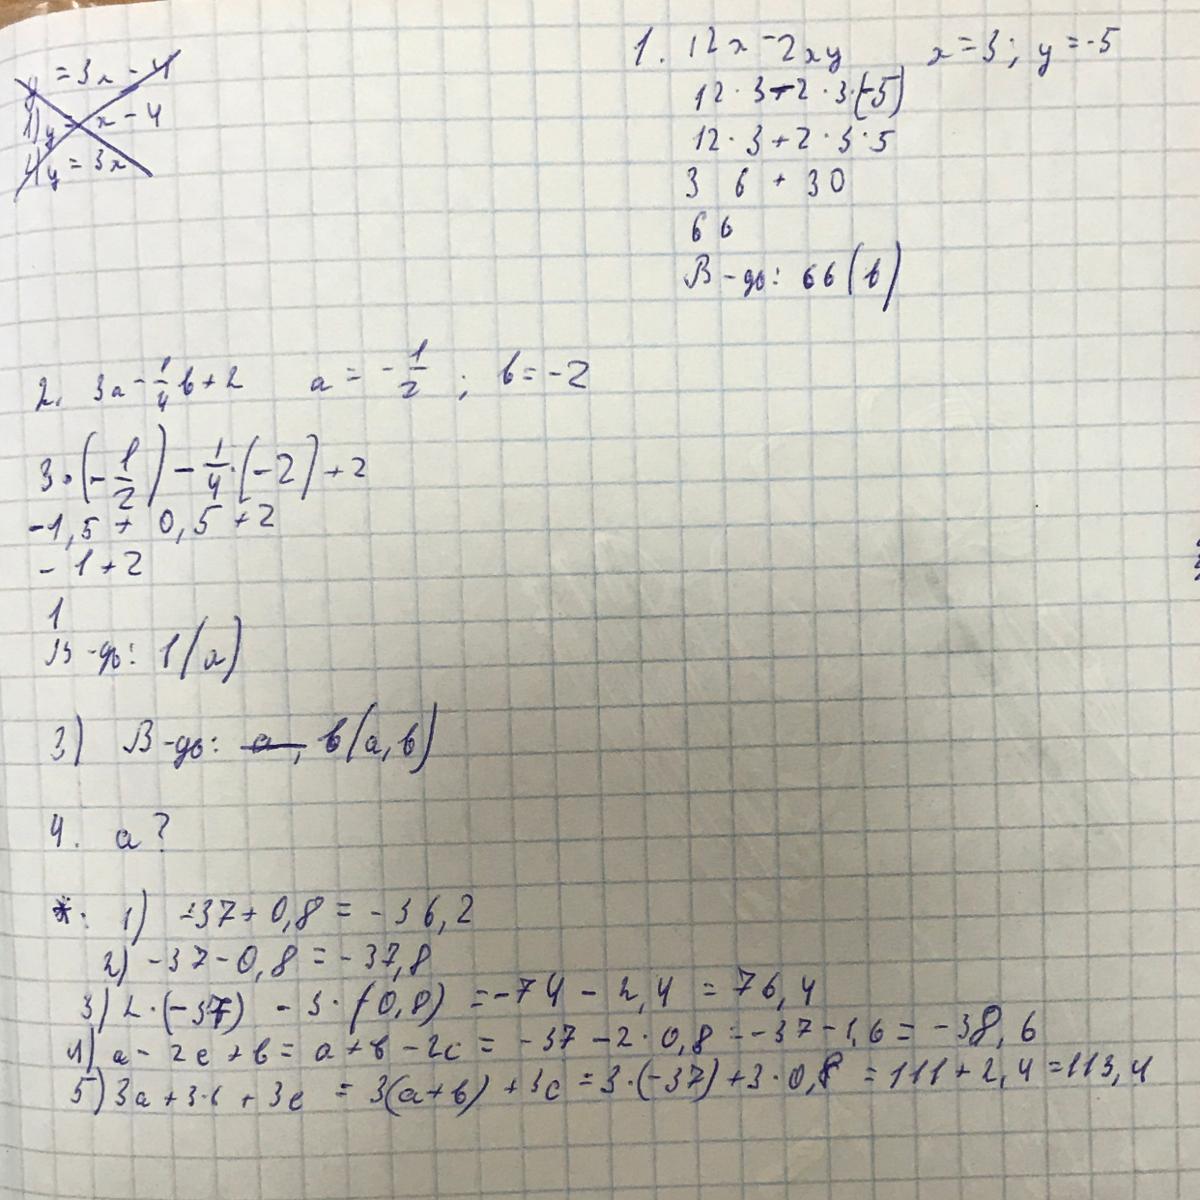 y = 3x - 4
1) y = x - 4
4) y = 3x
1. 12x - 2xy x = 3; y = -5
12 · 3 - 2 · 3 · (-5)
12 · 3 + 2 · 3 · 5
36 + 30
66
В-дь: 66 (b)
2. 3a - 1/4 b + 2 a = - 1/2 ; b = -2
3 · (- 1/2) - 1/4 · (-2) + 2
-1,5 + 0,5 + 2
- 1 + 2
1
В-дь: 1 (a)
3) В-дь: a, b (a, b)
4. a ?
*. 1) -37 + 0,8 = -36,2
2) -37 - 0,8 = -37,8
3) 2 · (-37) - 3 · (0,8) = -74 - 2,4 = 76,4
4) a - 2c + b = a + b - 2c = -37 - 2 · 0,8 = -37 - 1,6 = -38,6
5) 3a + 3b + 3c = 3(a + b) + 3c = 3 · (-37) + 3 · 0,8 = 111 + 2,4 = 113,4